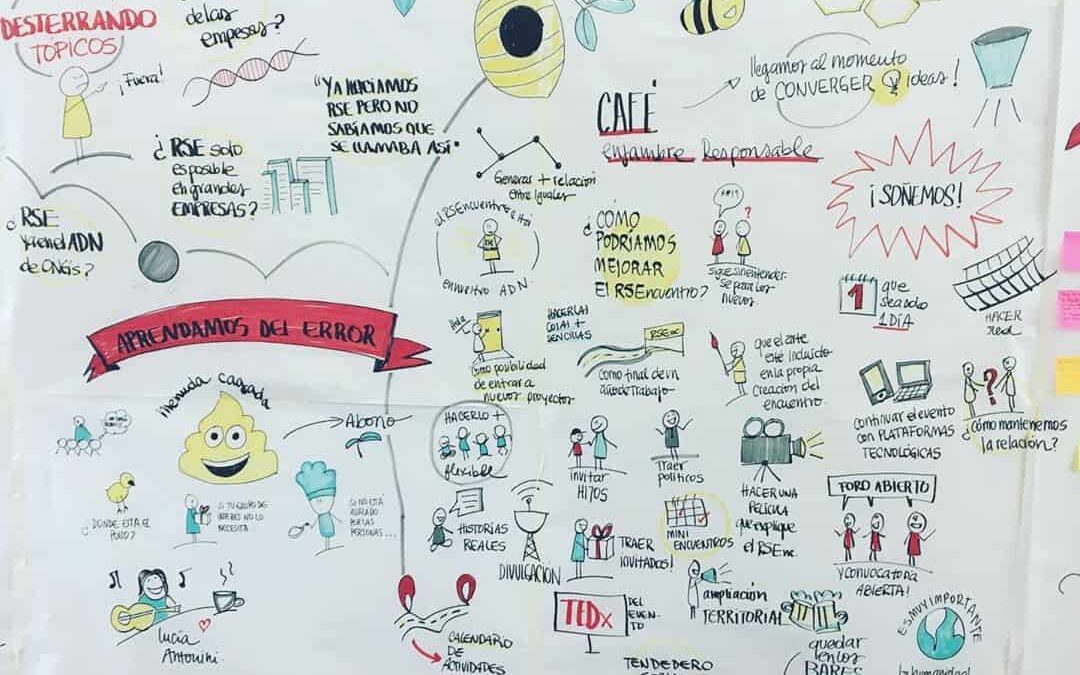 DESTERRANDO
TÓPICOS
¡Fuera!
de las
empresas?
"YA HACÍAMOS
RSE PERO NO
SABÍAMOS QUE
SE LLAMABA ASÍ"
¿RSE solo
es posible
en grandes
EMPRESAS?
¿RSE
y en el ADN
de ONGs?
APRENDAMOS DEL ERROR
¡menuda cagada
Abono
¿DONDE ESTA EL
POLLO?
SI TU GRUPO DE
NO LO
NECESITA
SI NO ESTÁ
POR LAS
PERSONAS...
Lucía
Antonini
llegamos al momento
de CONVERGER ideas!
CAFÉ
enjambre Responsable
Generar + relación
entre iguales
el RSEncuentro
en nuestro ADN
¿CÓMO
PODRÍAMOS
MEJORAR
El RSEncuentro?
sigue sin entender
se para los
nuevos.
¡SOÑEMOS!
1
que
sea solo
1 DÍA
HACER
red
Hola
como posibilidad
de entrar a
nuevos proyectos
HACER LAS
COSAS +
SENCILLAS
RSEnc
como final de un
año de trabajo
que el arte
esté incluido
en la propia
creación del
encuentro.
continuar el evento
con PLATAFORMAS
TECNOLÓGICAS
?
¿Cómo mantenemos
la relación?
HACERLO +
flexible
invitar
HIJOS
Traer
políticos
HACER UNA
PELÍCULA
que explique
el RSEnc.
FORO ABIERTO
Y CONVOCATORIA
ABIERTA!
HISTORIAS
REALES
DIVULGACIÓN
TRAER
INVITADOS!
MINI
ENCUENTROS
ampliación
TERRITORIAL
CALENDARIO
DE
ACTIVIDADES
TEDx
DEL
EVEN-
TO
TENDEDERO
quedar
en los
BARES
ES MUY IMPORTANTE
la humanidad!